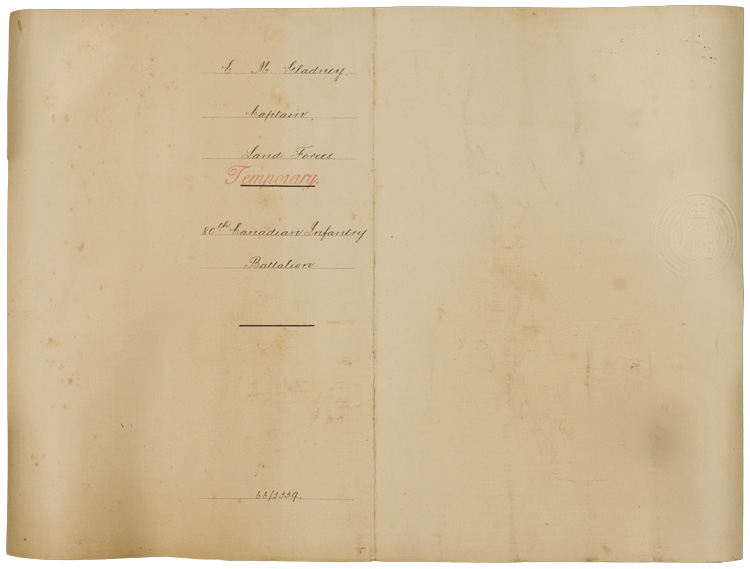 C M. Gladney.
Captain.
Land Forces.
Temporary.
80th Canadian Infantry
Battalion